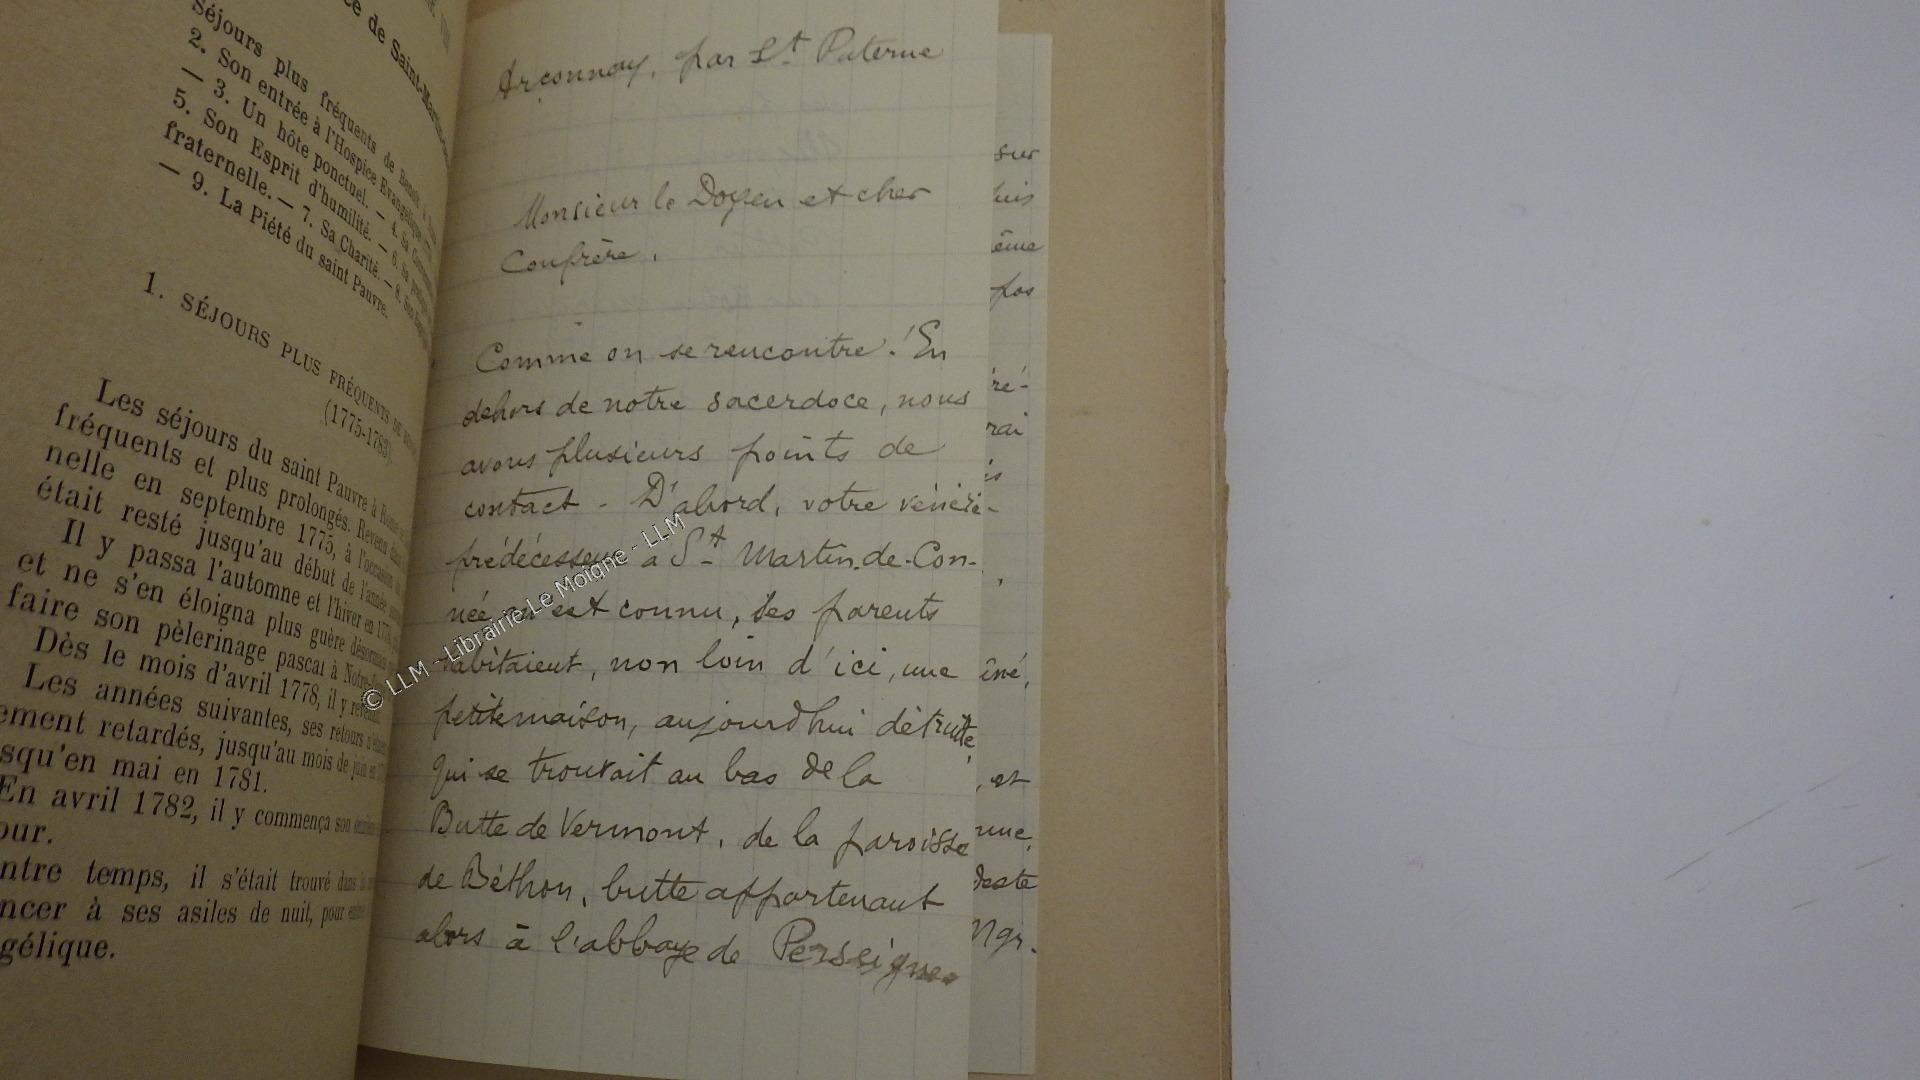 ce de Saint-Martin
Séjours plus fréquents de Benoît à
2. Son entrée à l'Hospice Évangélique. —
— 3. Un hôte ponctuel. — 4. Sa
5. Son Esprit d'humilité. — 6. Sa
fraternelle. — 7. Sa Charité. — 8. Son
— 9. La Piété du saint Pauvre.
1. SÉJOURS PLUS FRÉQUENTS DE
(1775-1783).
Les séjours du saint Pauvre à Rome
fréquents et plus prolongés. Revenu dans
nelle en septembre 1775, à l'occasion
était resté jusqu'au début de l'année
Il y passa l'automne et l'hiver en 1776,
et ne s'en éloigna plus guère désormais
faire son pèlerinage pascal à Notre-
Dès le mois d'avril 1778, il y revenait
Les années suivantes, ses retours
ement retardés, jusqu'au mois de juin en
squ'en mai en 1781.
En avril 1782, il y commença son
our.
ntre temps, il s'était trouvé dans
ncer à ses asiles de nuit, pour
gélique.
Arçonnay, par St Paterne
Monsieur le Doyen et cher
Confrère,
Comme on se rencontre! En
dehors de notre sacerdoce, nous
avons plusieurs points de
contact - D'abord, votre vénéré
prédécesseur a St Martin-de-Con-
née m'est connu, ses parents
habitaient, non loin d'ici, une
petite maison, aujourdhui détruite,
qui se trouvait au bas de la
Butte de Vermont, de la paroisse
de Béthon, butte appartenant
alors à l'abbaye de Perseigne.
sur
uis
ême
pas
ré-
rai
is
iné,
, et
une,
deste
Mgr.
© LLM - Librairie Le Moigne - LLM